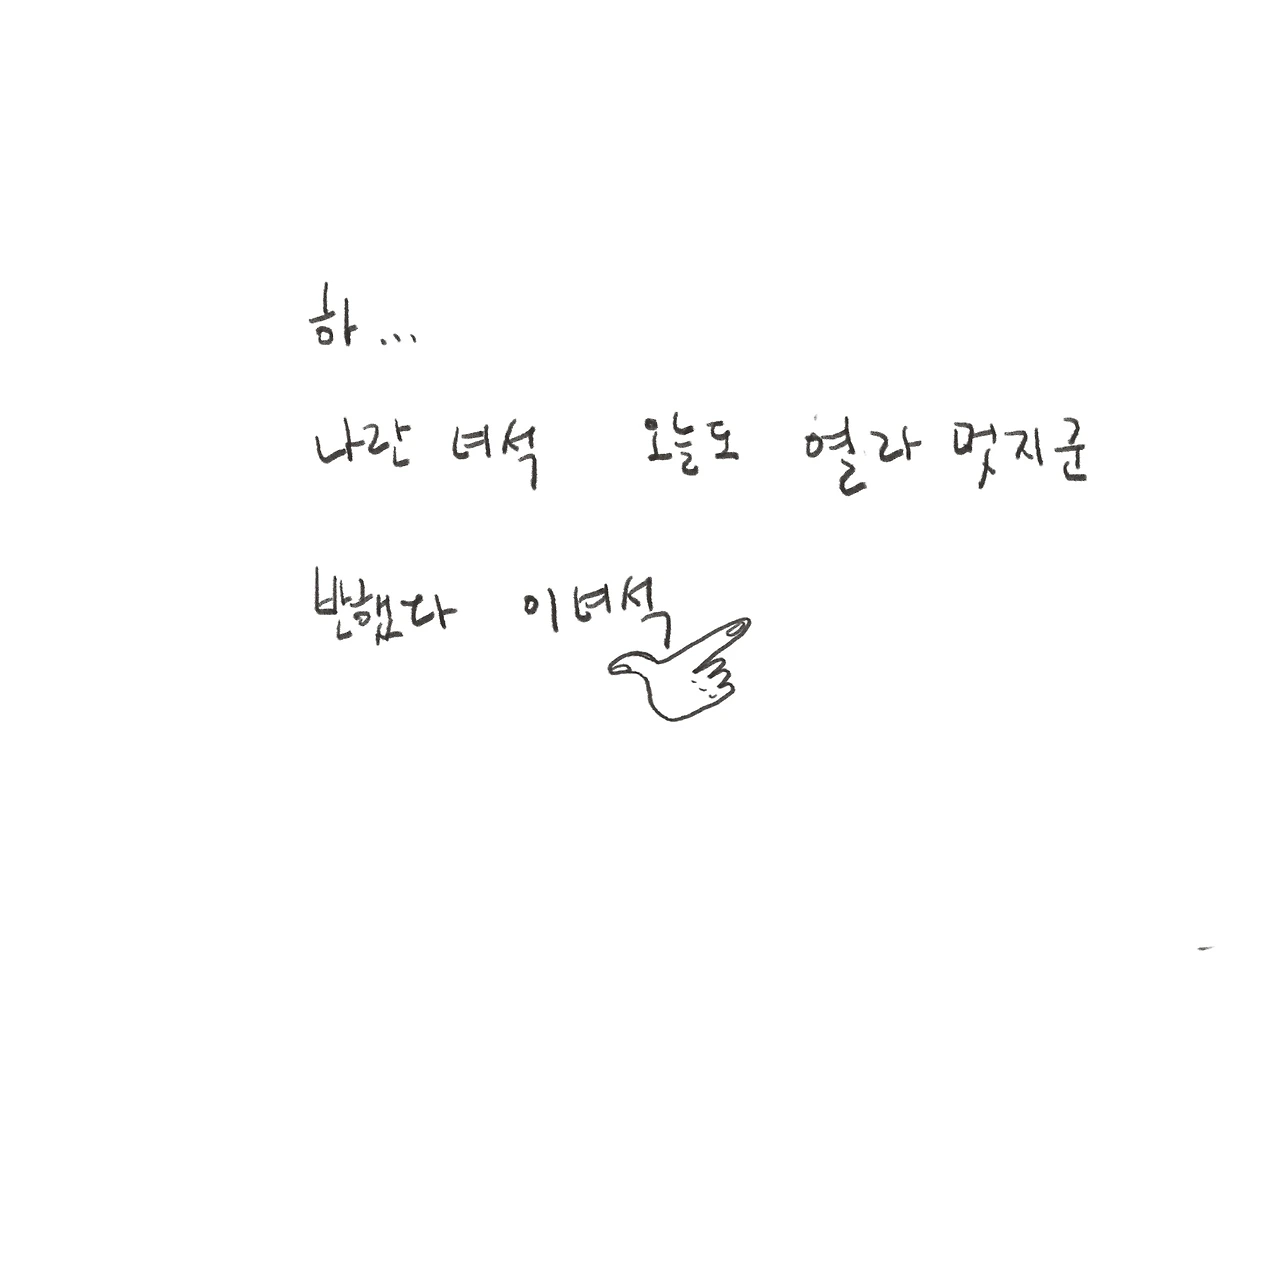 하...
나란 녀석 오늘도 열라 멋지군
반했다 이녀석